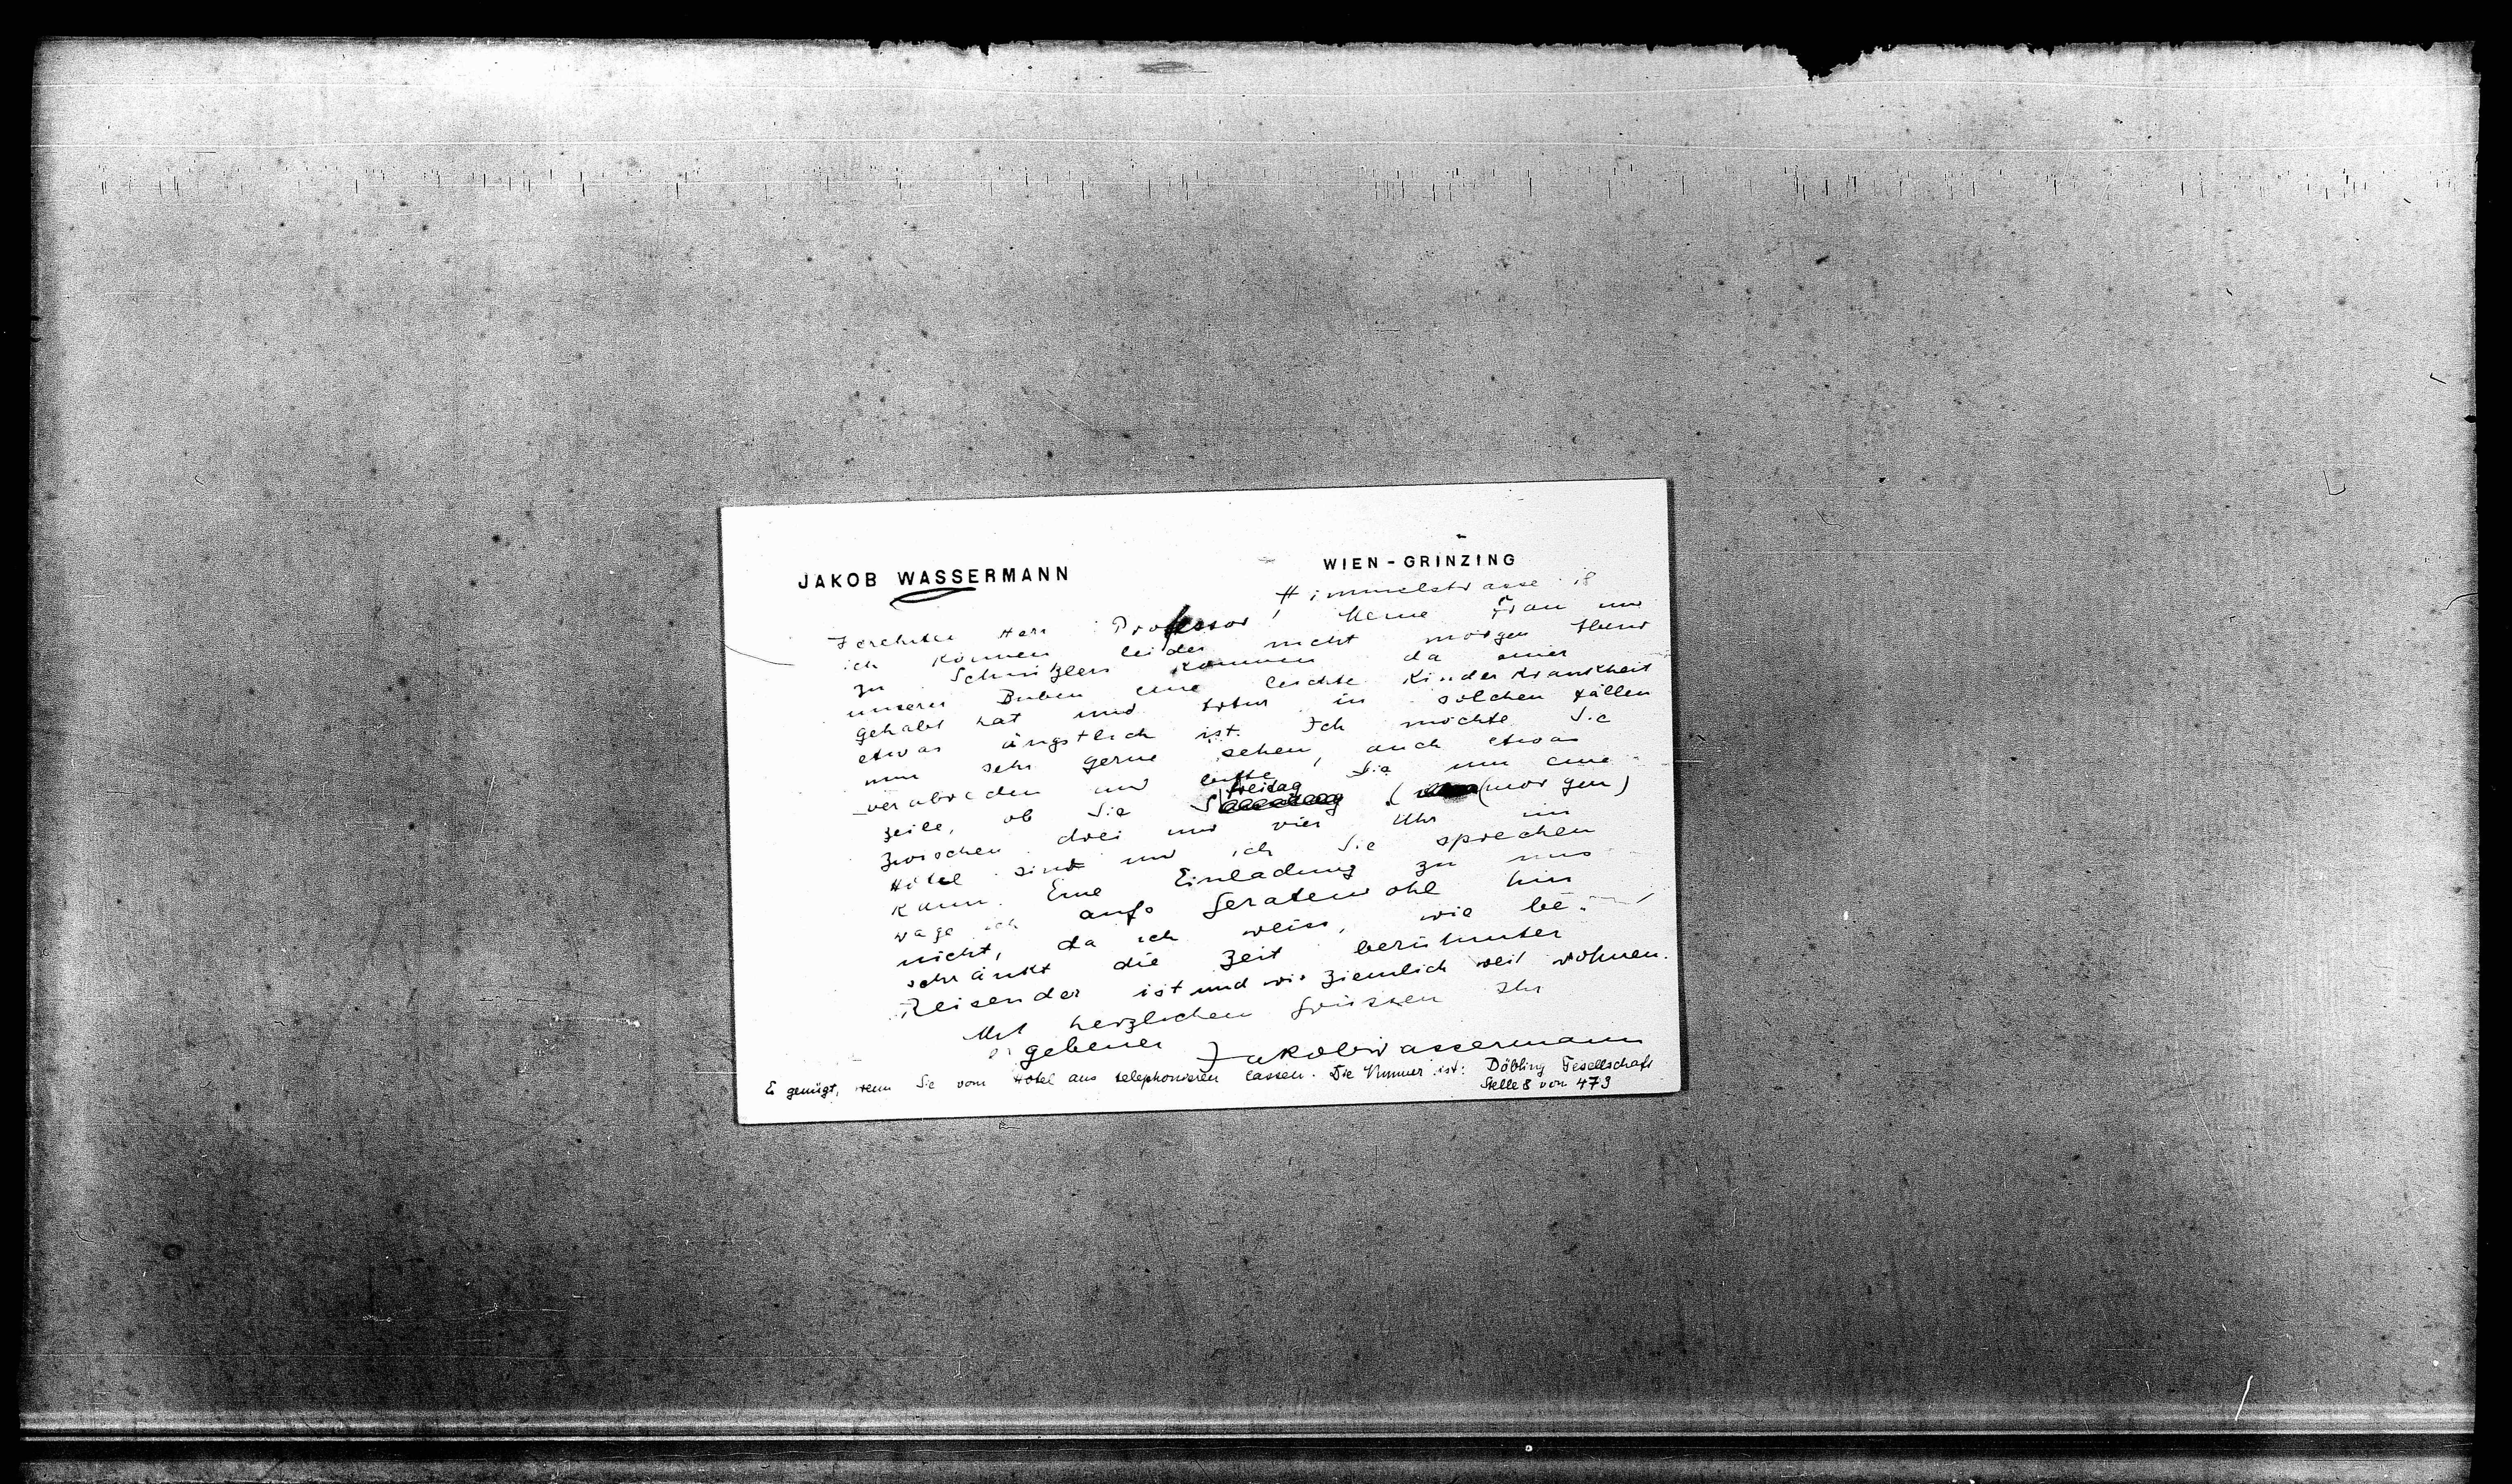 JAKOB WASSERMANN
WIEN-GRINZING
Himmelstrasse 18
Verehrter Herr Professor! Meine Frau und
ich können leider nicht morgen Abend
zu Schnitzlers kommen da einer
unserer Buben eine leichte Kinderkrankheit
gehabt hat und Artur in solchen Fällen
etwas ängstlich ist. Ich möchte Sie
nun sehr gerne sehen, auch etwas
verabreden und bitte Sie um eine
Zeile, ob Sie Freitag (morgen)
zwischen drei und vier Uhr im
Hôtel sind und ich Sie sprechen
kann. Eine Einladung zu uns
wage ich aufs Geratewohl hin
nicht, da ich weiss, wie be-
schränkt die Zeit berühmter
Reisender ist und wir ziemlich weit wohnen.
Mit herzlichen Grüssen Ihr
ergebener Jakob Wassermann
Es genügt, wenn Sie vom Hôtel aus telephonieren lassen. Die Nummer ist: Döbling Gesellschaft
Stelle 8 von 473